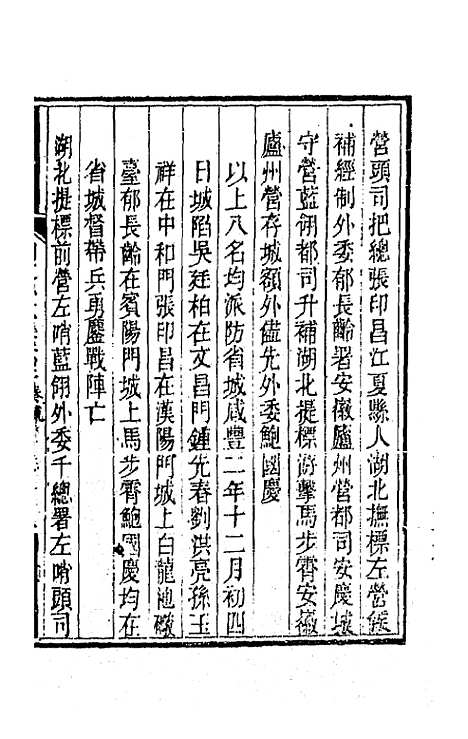 營頭司把總張印昌江夏縣人湖北撫標左營候
補經制外委郁長齡署安徽廬州營都司安慶城
守營藍翎都司升補湖北提標游擊馬步霄安徽
廬州營存城額外儘先外委鮑國慶
以上八名均派防省城咸豐二年十二月初四
日城陷吳廷柏在文昌門鍾先春劉洪亮孫玉
祥在中和門張印昌在漢陽門城上白龍池礮
臺郁長齡在賓陽門城上馬步霄鮑國慶均在
省城督帶兵勇鏖戰陣亡
湖北提標前營左哨藍翎外委千總署左哨頭司